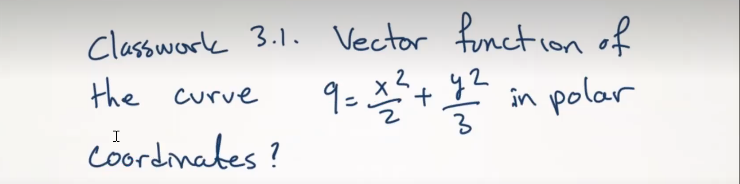 Classwork 3.1. Vector function of
the curve 9 = x²/2 + y²/3 in polar
coordinates?